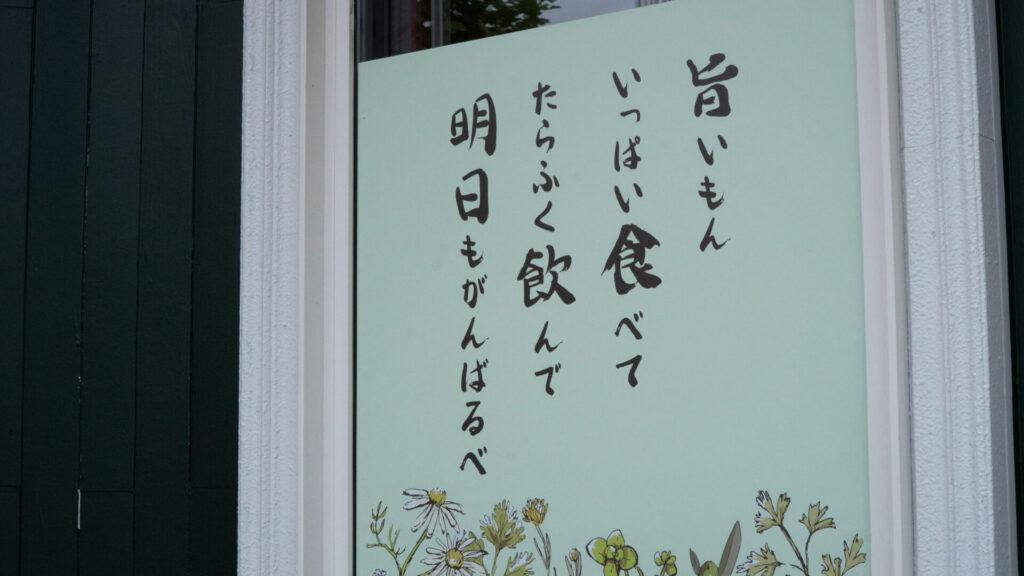 旨いもん
いっぱい食べて
たらふく飲んで
明日もがんばるべ